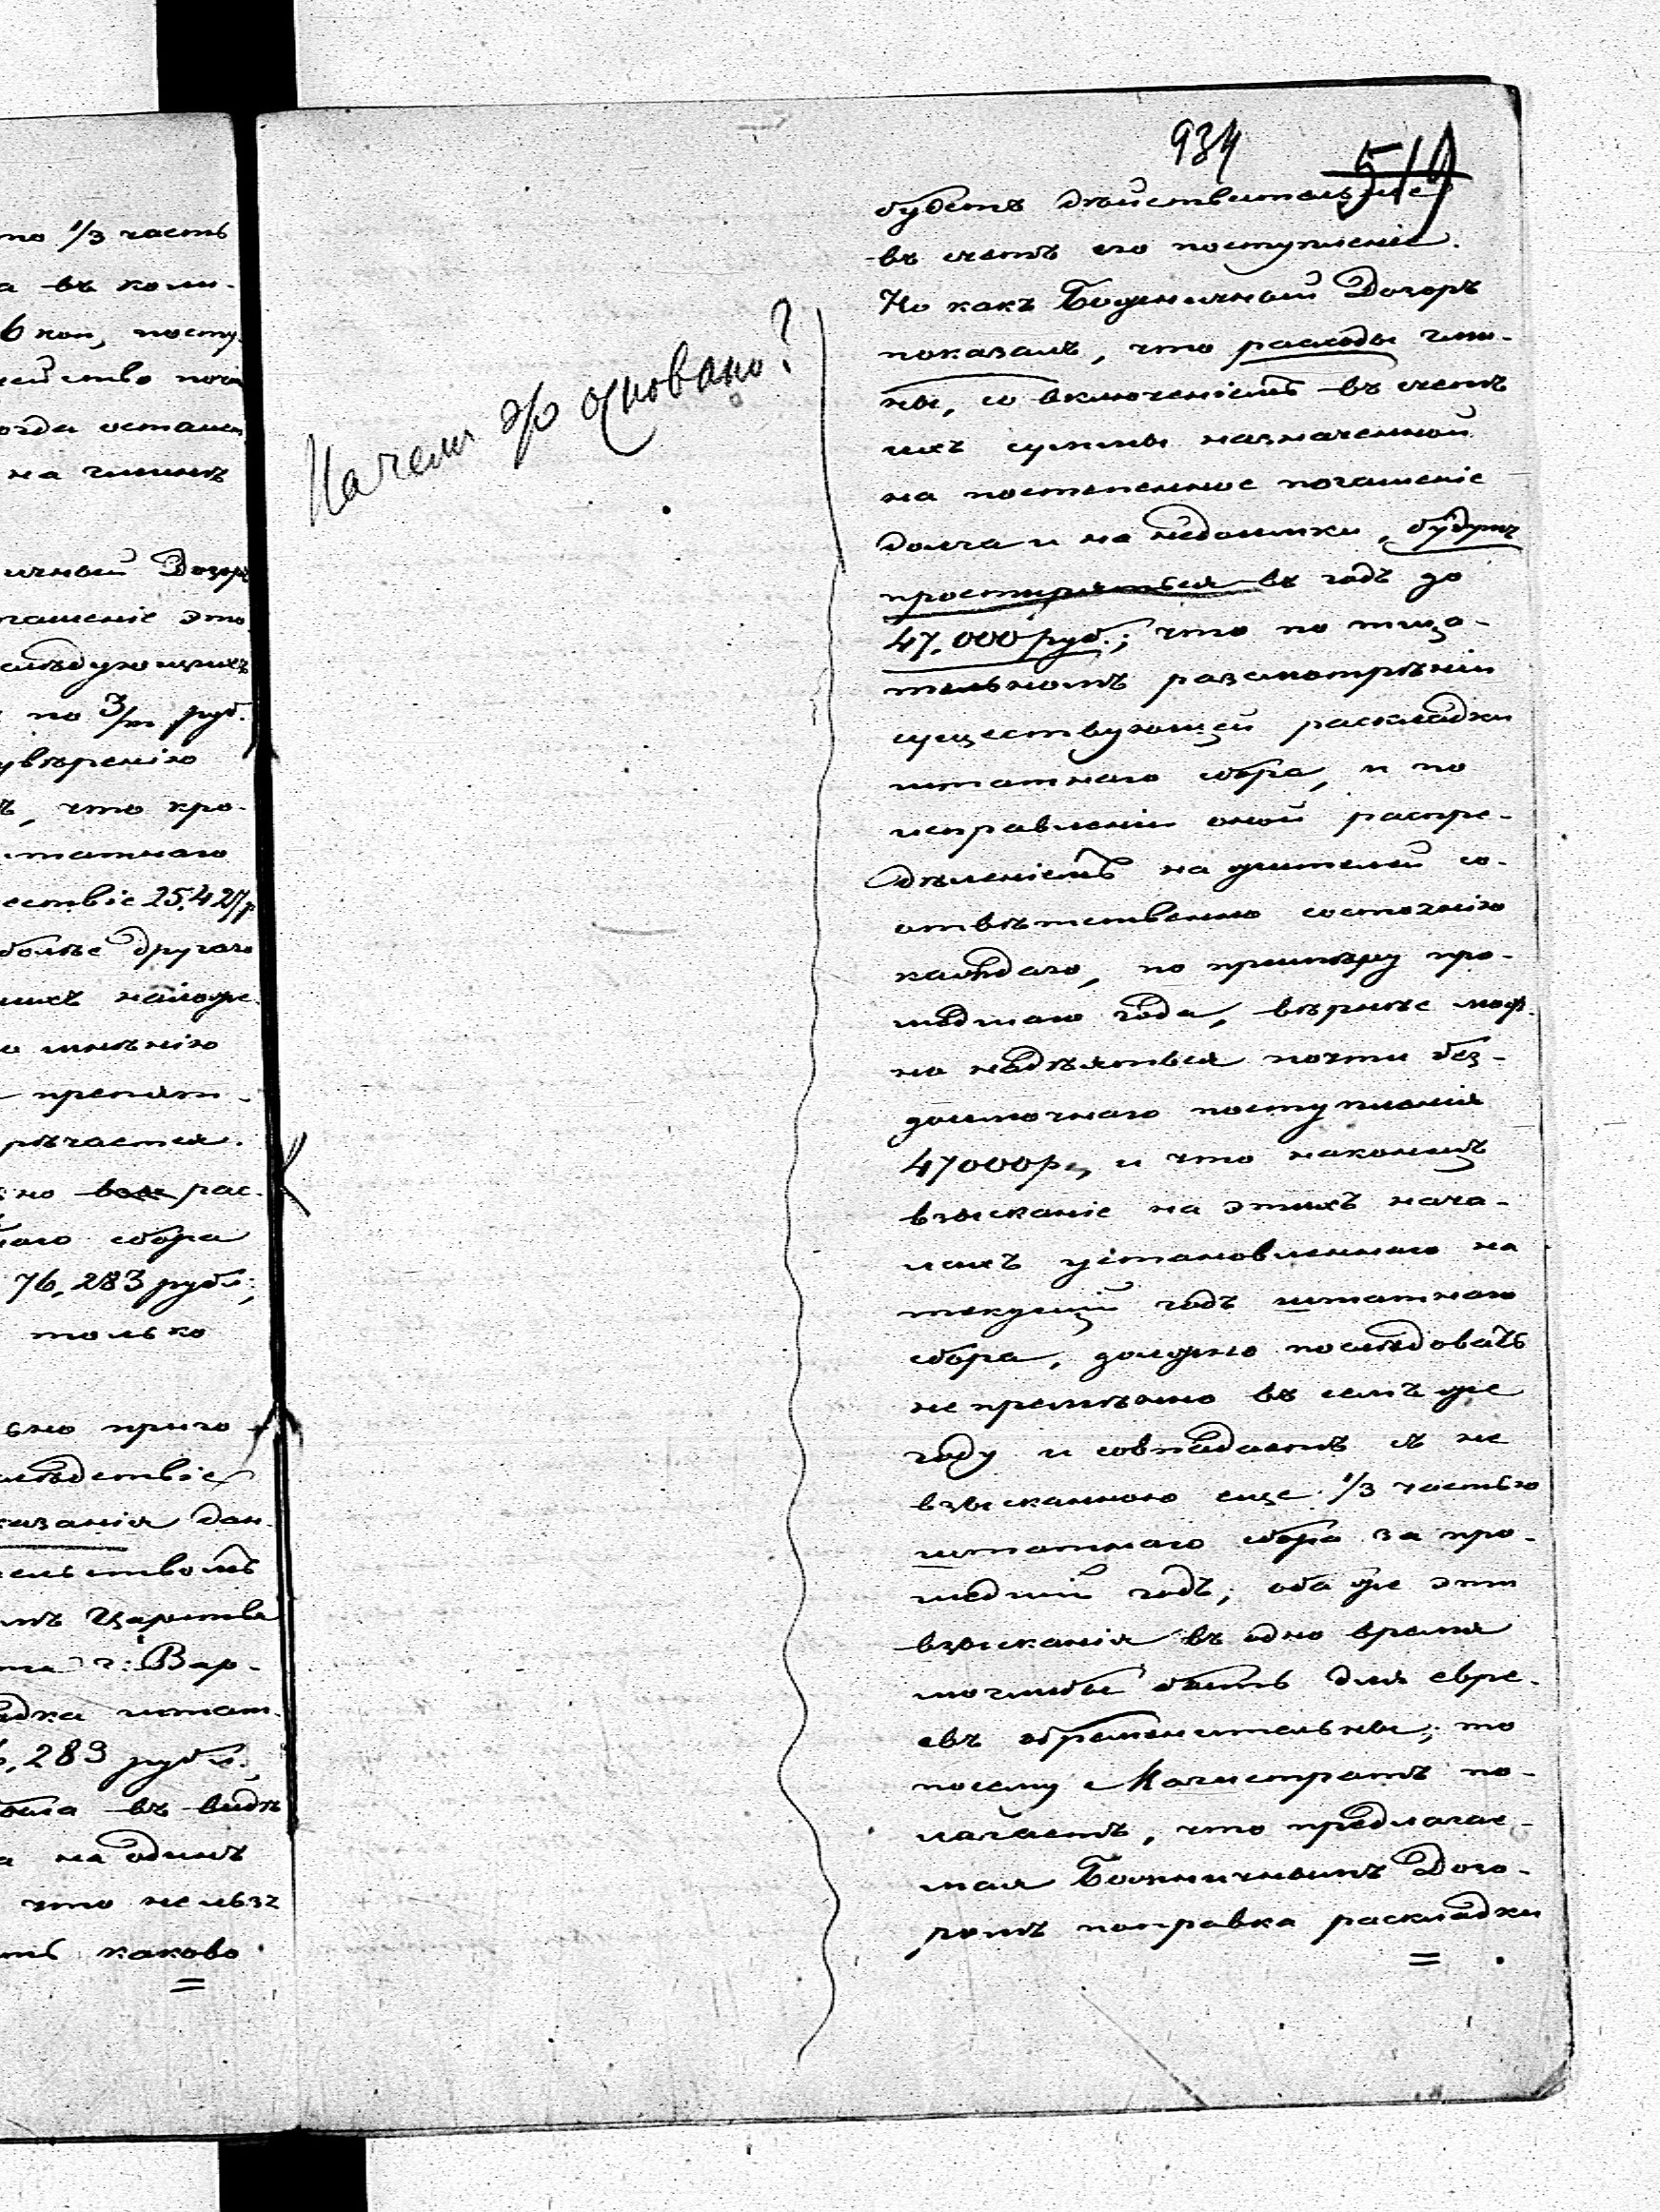 то 1/3 часть
а въ коли-
6 коп, посту
на гминъ
ичный Дозоръ
гашеніе это
слѣдующихъ
по 3/m руб.
, что кро-
татнаго
ествіе 25,427 р
болѣе другаго
ихъ наложе-
о мнѣнію
препят-
рѣчается.
но рас-
наго сбора
76,283 рубл;
только
ьно приго
слѣдствіе
казанія дан-
ельствомъ
Царства
та г: Вар-
адка штат-
,289 рубл.
была въ видѣ
а на одинъ
что нельзя
ть каково
934
519
будетъ дѣйствительное
въ счетъ его поступленіе.
Но какъ Божничный Дозоръ
показалъ, что расходы гми-
ны, со включеніемъ въ счетъ
ихъ суммы назначенной
на постепенное погашеніе
долга и на недоимки, будутъ
простираться въ годъ до
47.000 руб.; что по тща-
тельномъ разсмотрѣніи
существующей раскладки
штатнаго сбора, и по
исправленіи оной распре-
дѣленіемъ на жителей со-
отвѣтственно состоянію
каждаго, по примѣру про-
шедшаго года, вѣрнѣе мож-
но надѣяться почти без-
доимочнаго поступленія
47000 р, и что наконецъ
взысканіе на этихъ нача-
лахъ установленнаго на
текущій годъ штатнаго
сбора, должно послѣдовать
непремѣнно въ семъ же
году и совпадаетъ съ не
взысканною еще 1/3 частью
штатнаго сбора за про-
шедшій годъ; оба же эти
взысканія въ одно время
моглибы быть для евре-
евъ обременительны; то
посему Магистратъ по-
лагаетъ, что предлагае-
мая Божничнымъ Дозо-
ромъ поправка раскладки
На чемъ это основано?